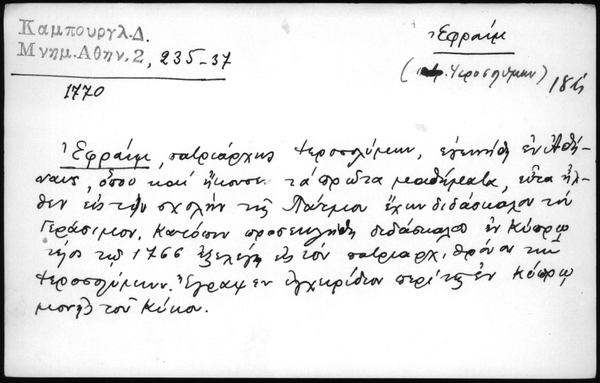 Καμπουργλ.Δ.
Μνημ.Αθην.2, 235-37
1770
Ἐφραὶμ
(πατρ. Ἱεροσολύμων) 18ος
Ἐφραὶμ, πατριάρχης Ἱεροσολύμων, ἐγεννήθη ἐν Ἀθή-
ναις, ὅπου καὶ ἤκουσε τὰ πρῶτα μαθήματα, εἶτα ἦλ-
θεν εἰς τὴν σχολὴν τῆς Πάτμου ἔχων διδάσκαλον τὸν
Γεράσιμον. Κατόπιν προσεκλήθη διδάσκαλος ἐν Κύπρῳ
τῷ 1766 ἐξελέγη εἰς τὸν πατριαρχ. θρόνον τῶν
Ἱεροσολύμων. Ἔγραψεν ἐγχειρίδιον περὶ τῆς ἐν Κύπρῳ
μονῆς τοῦ Κύκου.